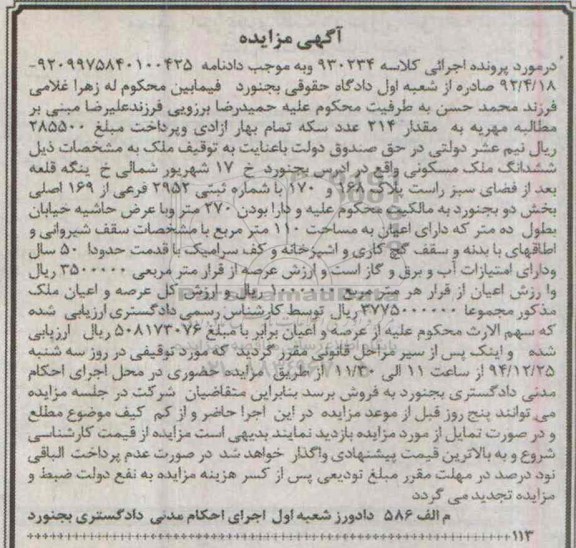 آگهی مزایده
درمورد پرونده اجرائی کلاسه ۹۳۰۲۳۴ وبه موجب دادنامه ۹۲۰۹۹۷۵۸۴۰۱۰۰۴۲۵-
۹۲/۴/۱۸ صادره از شعبه اول دادگاه حقوقی بجنورد فیمابین محکوم له زهرا غلامی
فرزند محمد حسن به طرفیت محکوم علیه حمیدرضا برزویی فرزندعلیرضا مبنی بر
مطالبه مهریه به مقدار ۲۱۴ عدد سکه تمام بهار ازادی وپرداخت مبلغ ۲۸۵۵۰۰
ریال نیم عشر دولتی در حق صندوق دولت باعنایت به توقیف ملک به مشخصات ذیل
ششدانگ ملک مسکونی واقع در ادرس بجنورد خ ۱۷ شهریور شمالی خ ینگه قلعه
بعد از فضای سبز راست پلاک ۱۶۸ و ۱۷۰ با شماره ثبتی ۲۹۵۲ فرعی از ۱۶۹ اصلی
بخش دو بجنورد به مالکیت محکوم علیه و دارا بودن ۲۷۰ متر وبا عرض حاشیه خیابان
بطول ده متر که دارای اعیان به مساحت ۱۱۰ متر مربع با مشخصات سقف شیروانی و
اطاقهای با بدنه و سقف گچ کاری و اشپزخانه و کف سرامیک با قدمت حدودا ۵۰ سال
ودارای امتیازات آب و برق و گاز است و ارزش عرصه از قرار متر مربعی ۳۵۰۰۰۰۰ ریال
وا رزش اعیان از قرار هر متر مربع ۱۰۰۰۰۰۰ ریال و ارزش کل عرصه و اعیان ملک
مذکور مجموعا ۳۷۷۵۰۰۰۰۰۰ ریال توسط کارشناس رسمی دادگستری ارزیابی شده
که سهم الارث محکوم علیه از عرصه و اعیان برابر با مبلغ ۵۰۸۱۷۳۰۷۶ ریال ارزیابی
شده و اینک پس از سیر مراحل قانونی مقرر گردید که مورد توقیفی در روز سه شنبه
۹۴/۱۲/۲۵ از ساعت ۱۱ الی ۱۱/۳۰ از طریق مزایده حضوری در محل اجرای احکام
مدنی دادگستری بجنورد به فروش برسد بنابراین متقاضیان شرکت در جلسه مزایده
می توانند پنج روز قبل از موعد مزایده در این اجرا حاضر و از کم کیف موضوع مطلع
و در صورت تمایل از مورد مزایده بازدید نمایند بدیهی است مزایده از قیمت کارشناسی
شروع و به بالاترین قیمت پیشنهادی واگذار خواهد شد در صورت عدم پرداخت الباقی
نود درصد در مهلت مقرر مبلغ تودیعی پس از کسر هزینه مزایده به نفع دولت ضبط و
مزایده تجدید می گردد
م الف ۵۸۶ دادورز شعبه اول اجرای احکام مدنی دادگستری بجنورد
۱۱۳